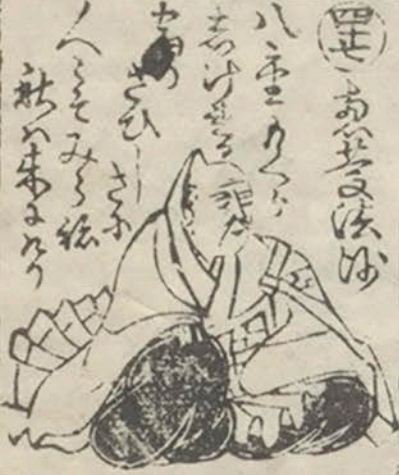 四十七
恵慶法師
八重むくら
しけれる
宿の
さひし
きに
人こそみえね
秋は来にけり